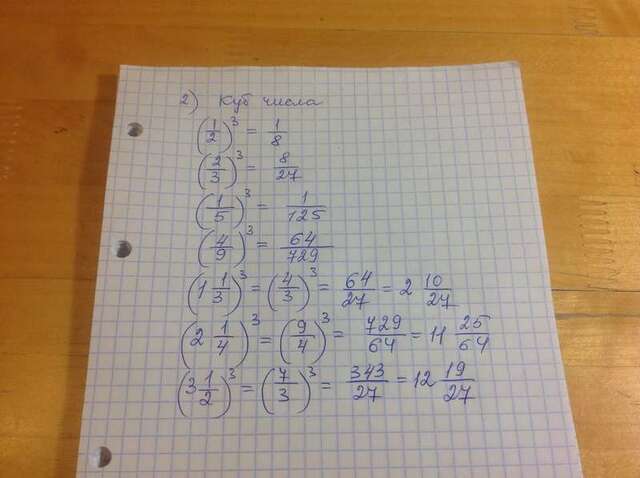 2) Куб числа
(1/2)³ = 1/8
(2/3)³ = 8/27
(1/5)³ = 1/125
(4/9)³ = 64/729
(1 1/3)³ = (4/3)³ = 64/27 = 2 10/27
(2 1/4)³ = (9/4)³ = 729/64 = 11 25/64
(3 1/2)³ = (7/3)³ = 343/27 = 12 19/27